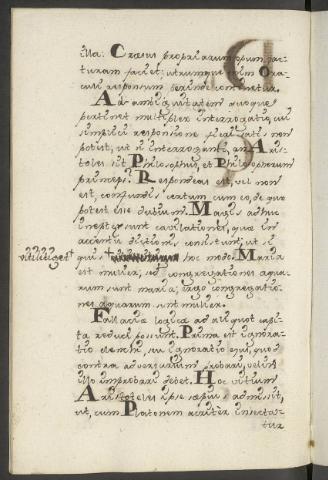 illa: Cræsus propriarum opum jac-
turam faciet; utrumque enim Ora-
culi responsum
Ad ambiguitatem quoque
pertinet multiplex interrogatio, cui
simplici responsione satisfieri non
potest, ut si interrogant, an Aris-
toteles sit Philosophus, et Philosophorum
princeps? Respondens est, vel non
est, confundis certum cum eo, de quo
potest esse dubium. Magis adhuc
ineptæ sunt cavillationes, quæ in
accentu ditionis consistunt, ut si
quis hoc modo. Maria
est mulier, sed congregationes aqua-
rum sunt maria; ergo congregatio-
nes aquarum sunt mulier.
Fallaciæ logicæ ad aliquot capi-
ta reduci possunt. Prima est ignora-
tio elenchi, seu ignoratio ejus, quod
contra adversarium probari, vel in
illo improbari debet. Hoc vitium
Aristoteles ipse sæpius admisit,
ut, cum Platonem acriter insecta-
tur